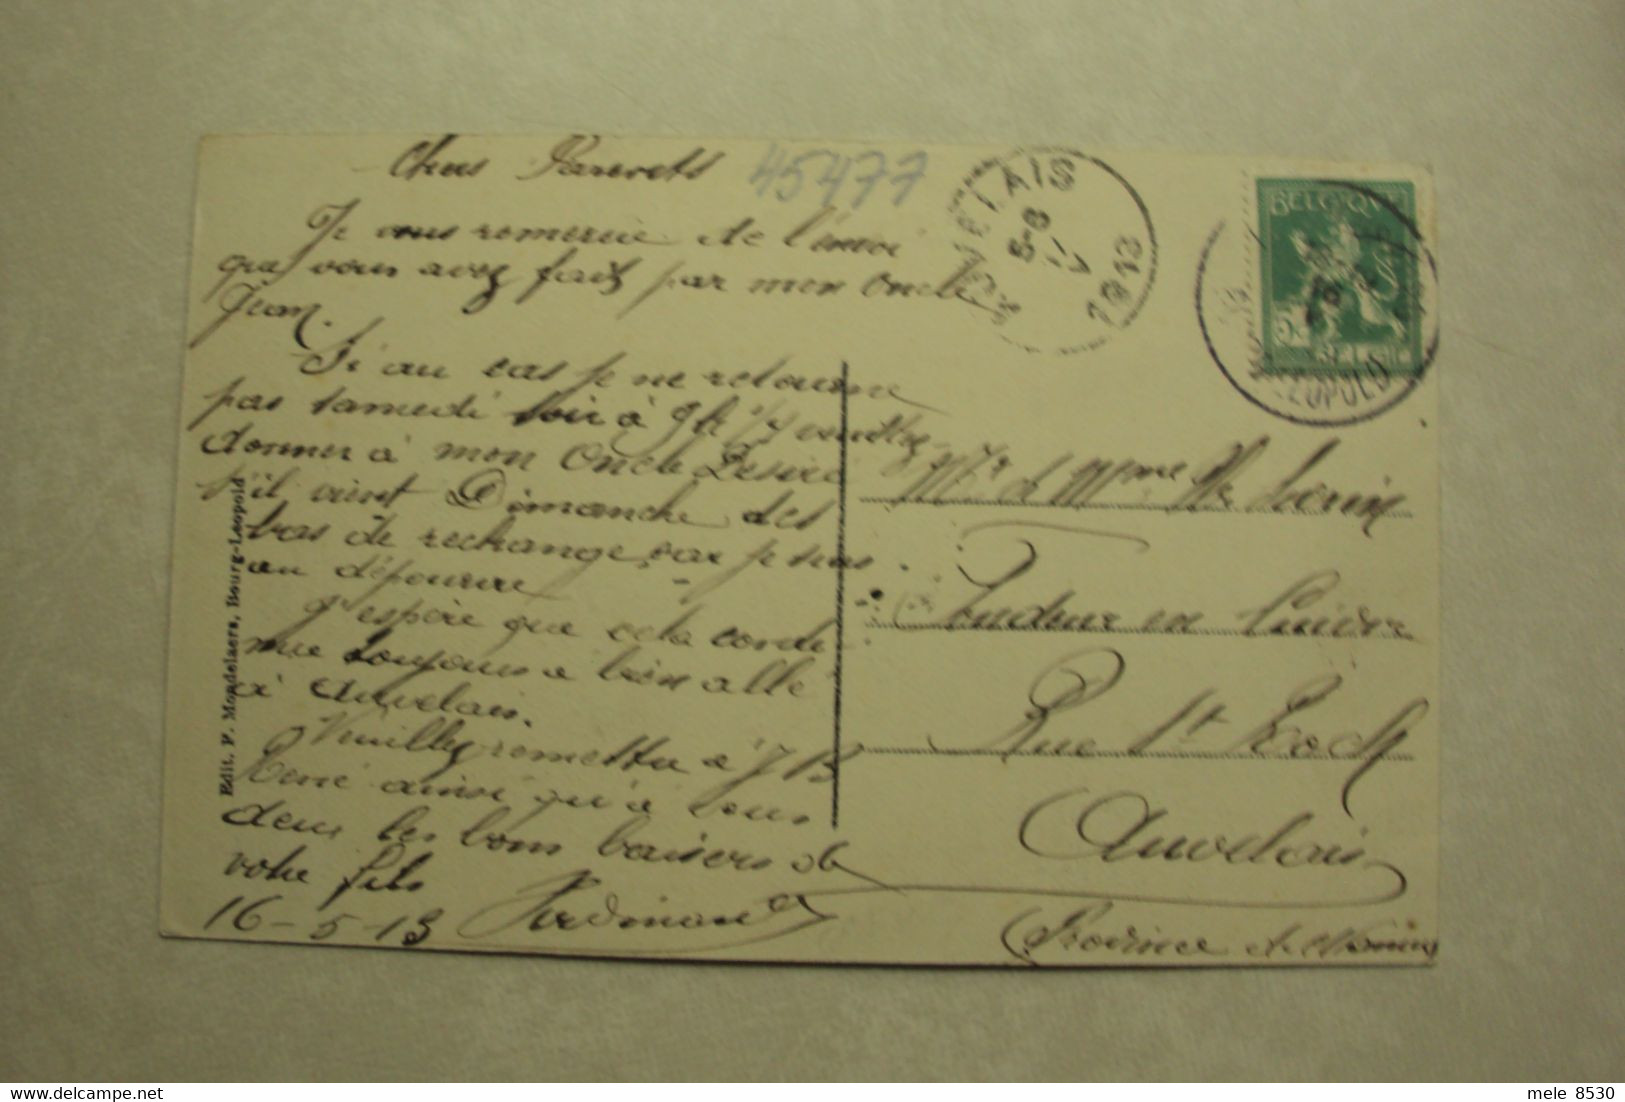 Chers Parents
45477
Je vous remercie de l'envoi
que vous avez fait par mon Oncle
Jean.
Si au cas je ne retourne
pas samedi soir à 9h 1/4 veuillez
donner à mon Oncle Désiré
s'il vient Dimanche des
bas de rechange, car je suis
au dépourvu
J'espère que cela conti
nue toujours a bien allé
à Auvelais.
Veuillez remettre a J B
René ainsi qu'à vous
deux les bons baisers de
votre fils
16-5-13 Ferdinand
AUVELAIS
1913
BELGIQUE
5
BELGIË
LEOPOLD
Mr & Mme
Fondeur en Cuivre
Rue St Roch
Auvelais
(Province de Namur
Edit. F. Mondelaers, Bourg-Léopold
mele 8530